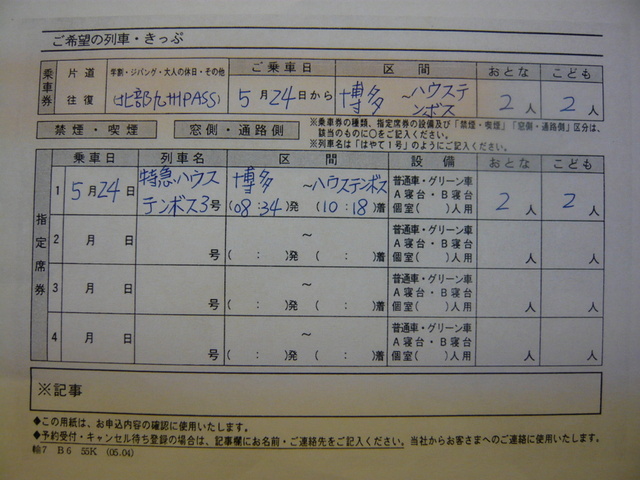 ご希望の列車・きっぷ
乗車券 片道 往復 学割・ジパング・大人の休日・その他 (北部九州PASS) ご乗車日 5月24日から 区間 博多 ～ハウステンボス おとな 2人 こども 2人
禁煙・喫煙 窓側・通路側
※乗車券の種類、指定席券の設備及び「禁煙・喫煙」「窓側・通路側」区分は、
該当のものに○をご記入ください。
※列車名は「はやて1号」のようにご記入ください。
指定席券 乗車日 列車名 区間 設備 おとな こども
1 5月24日 特急ハウステンボス3号 博多 ～ハウステンボス (08:34)発 (10:18)着 普通車・グリーン車 A寝台・B寝台 個室( )人用 2人 2人
2 月 日 号 ～ ( : )発 ( : )着 普通車・グリーン車 A寝台・B寝台 個室( )人用 人 人
3 月 日 号 ～ ( : )発 ( : )着 普通車・グリーン車 A寝台・B寝台 個室( )人用 人 人
4 月 日 号 ～ ( : )発 ( : )着 普通車・グリーン車 A寝台・B寝台 個室( )人用 人 人
※記事
◆この用紙は、お申込内容の確認に使用いたします。
◆予約受付・キャンセル待ち登録の場合は、記事欄にお名前・ご連絡先をご記入ください。当社からお客さまへのご連絡に使用いたします。
輸7 B6 55K (05.04)